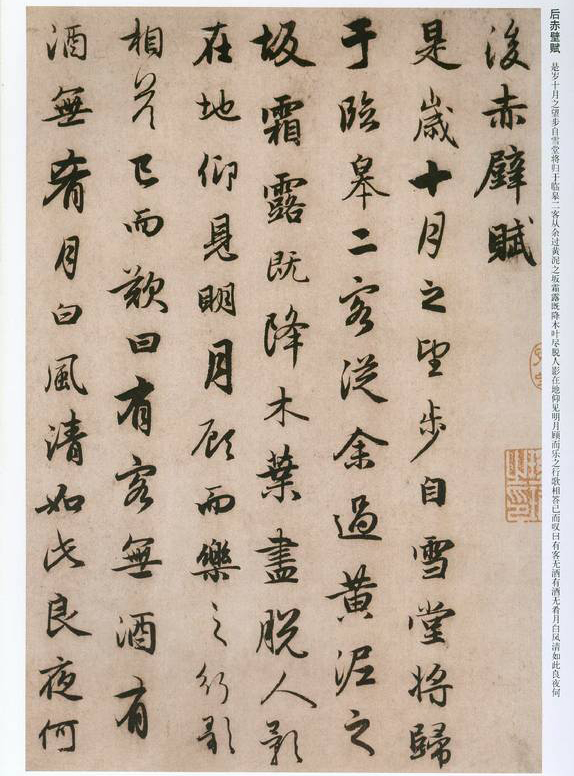 后赤壁赋 是岁十月之望步自雪堂将归于临皋二客从余过黄泥之坂霜露既降木叶尽脱人影在地仰见明月顾而乐之行歌相答已而叹曰有客无酒有酒无肴月白风清如此良夜何
後赤壁賦
是歲十月之望步自雪堂將歸
于臨皋二客從余過黄泥之
坂霜露既降木葉盡脱人影
在地仰見明月顧而樂之行歌
相答已而歎曰有客無酒有
酒無肴月白風清如此良夜何